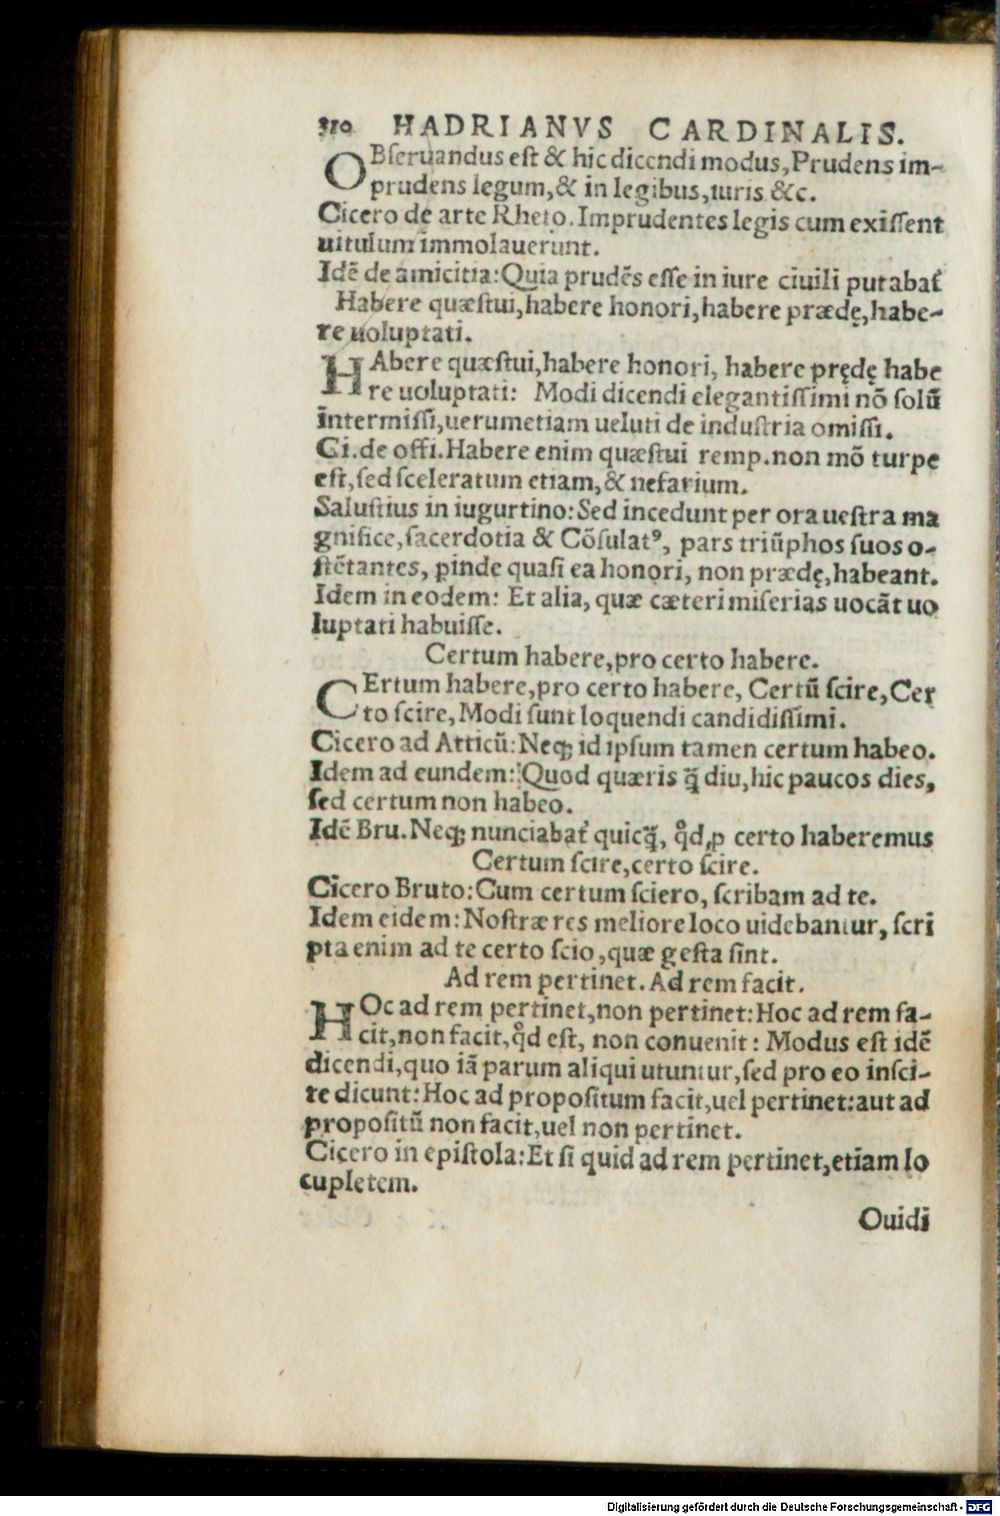 310 HADRIANVS CARDINALIS.
OBſeruandus eſt & hic dicendi modus, Prudens im-
prudens legum, & in legibus, iuris &c.
Cicero de arte Rheto. Imprudentes legis cum exiſſent
uitulum immolauerunt.
Idē de amicitia: Quia prudēs eſſe in iure ciuili putabat᷑
Habere quæſtui, habere honori, habere prædę, habe-
re uoluptati.
HAbere quæſtui, habere honori, habere prędę habe
re uoluptati: Modi dicendi elegantiſſimi nō ſolū
intermiſſi, uerumetiam ueluti de induſtria omiſſi.
Ci. de offi. Habere enim quæſtui remp. non mō turpe
eſt, ſed ſceleratum etiam, & nefarium.
Saluſtius in iugurtino: Sed incedunt per ora ueſtra ma
gnifice, ſacerdotia & Cōſulatꝰ, pars triūphos ſuos o-
ſtētantes, pinde quaſi ea honori, non prædę, habeant.
Idem in eodem: Et alia, quæ cæteri miſerias uocāt uo
luptati habuiſſe.
Certum habere, pro certo habere.
CErtum habere, pro certo habere, Certū ſcire, Cer
to ſcire, Modi ſunt loquendi candidiſſimi.
Cicero ad Atticū: Neq; id ipſum tamen certum habeo.
Idem ad eundem: Quod quæris q̄̃ diu, hic paucos dies,
ſed certum non habeo.
Idē Bru. Neq; nunciabat᷑ quicq̄̃, qͦd ꝓ certo haberemus
Certum ſcire, certo ſcire.
Cicero Bruto: Cum certum ſciero, ſcribam ad te.
Idem eidem: Noſtræ res meliore loco uidebantur, ſcri
pta enim ad te certo ſcio, quæ geſta ſint.
Ad rem pertinet. Ad rem facit.
HOc ad rem pertinet, non pertinet: Hoc ad rem fa-
cit, non facit, qͦd eſt, non conuenit: Modus eſt idē
dicendi, quo iā parum aliqui utuntur, ſed pro eo inſci-
te dicunt: Hoc ad propoſitum facit, uel pertinet: aut ad
propoſitū non facit, uel non pertinet.
Cicero in epiſtola: Et ſi quid ad rem pertinet, etiam lo
cupletem.
Ouidi
Digitalisierung gefördert durch die Deutsche Forschungsgemeinschaft - DFG